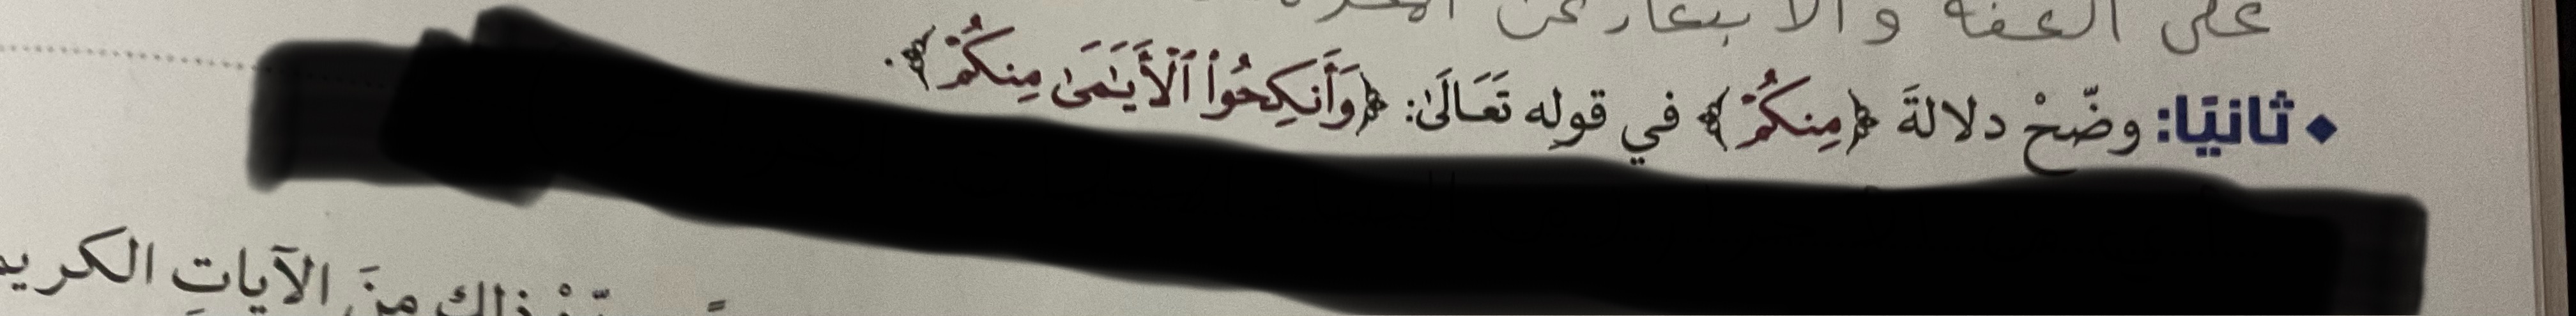 على العفة والابتعاد عن
◆ ثانيًا: وضّحْ دلالةَ ﴿مِنكُمْ﴾ في قوله تَعَالَىٰ: ﴿وَأَنكِحُوا۟ ٱلْأَيَـٰمَىٰ مِنكُمْ﴾.
ذلك منَ الآياتِ